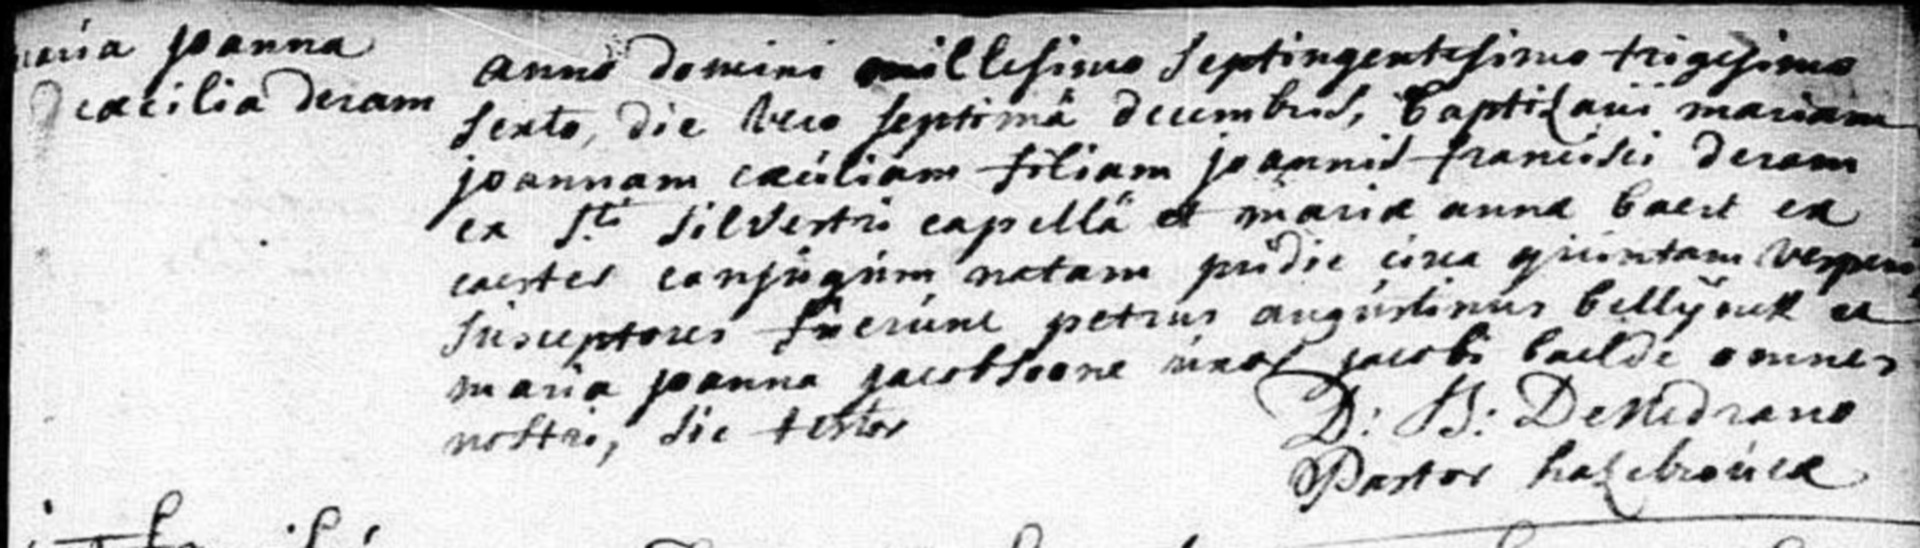 maria joanna
cæcilia deram
anno domini millesimo septingentesimo trigesimo
sexto, die vero septimâ decembris, baptizavi mariam
joannam cæciliam filiam joannis francisci deram
ex Sti silvestri capellâ et mariæ annæ baert ex
caester conjugum natam pridie circa quintam vesperi
susceptores fuerunt petrus augustinus bellÿnck et
maria joanna jacobsoone uxor jacobi baelde omnes
nostri, sic testor
D: B: De
Pastor hazebroucæ